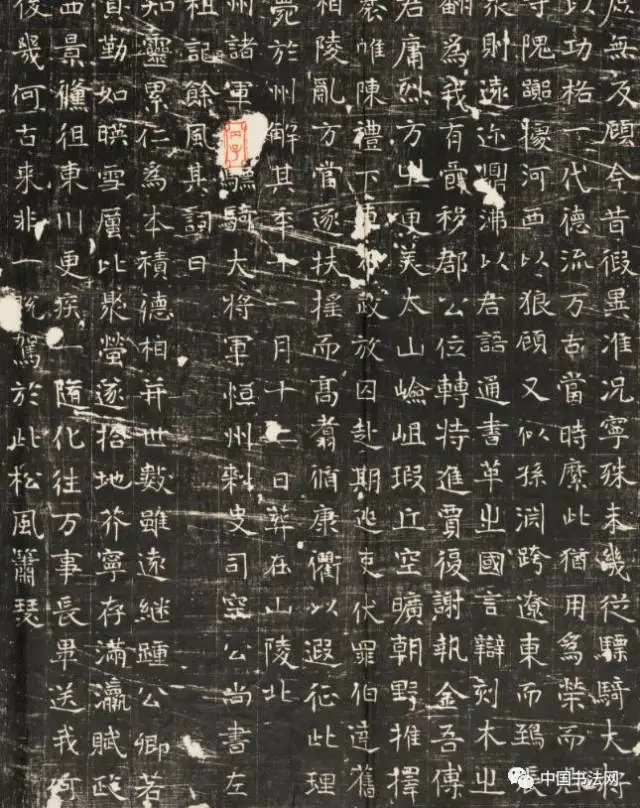 庶無反顧今昔徦異准況寧殊未幾從驃騎大將
以功格一代德流万古當時縻此猶用為榮而
等隗嚻擾河西以狼顧又似孫淵跨遼東而鵄張
衆則遠迩鼎沸以君語通書革出國言辯刻木出
翻為我有霸移郡公位轉特進賈復謝執金吾傅
君庸烈方出更美太山嶮岨瑕丘空曠朝野推擇
褰帷陳禮下車布政放囚赴期逃吏伏罪伯達舊
相陵亂方當逐扶摇而高翥循康衢以遐征此理
薨於州廨其年十一月十二日葬在山陵北
州諸軍驃騎大將軍恒州刺史司空公尚書左
祖記餘風其詞曰
知靈累仁為本積德相并世數雖遠継踵公卿若
負勤如暎雪厲比聚螢遂拾地芥寧存滿瀛賦政
西景儵徂東川更疾一隨化往万事長畢送我何
後幾何古來非一稅駕於此松風蕭瑟
中国书法网